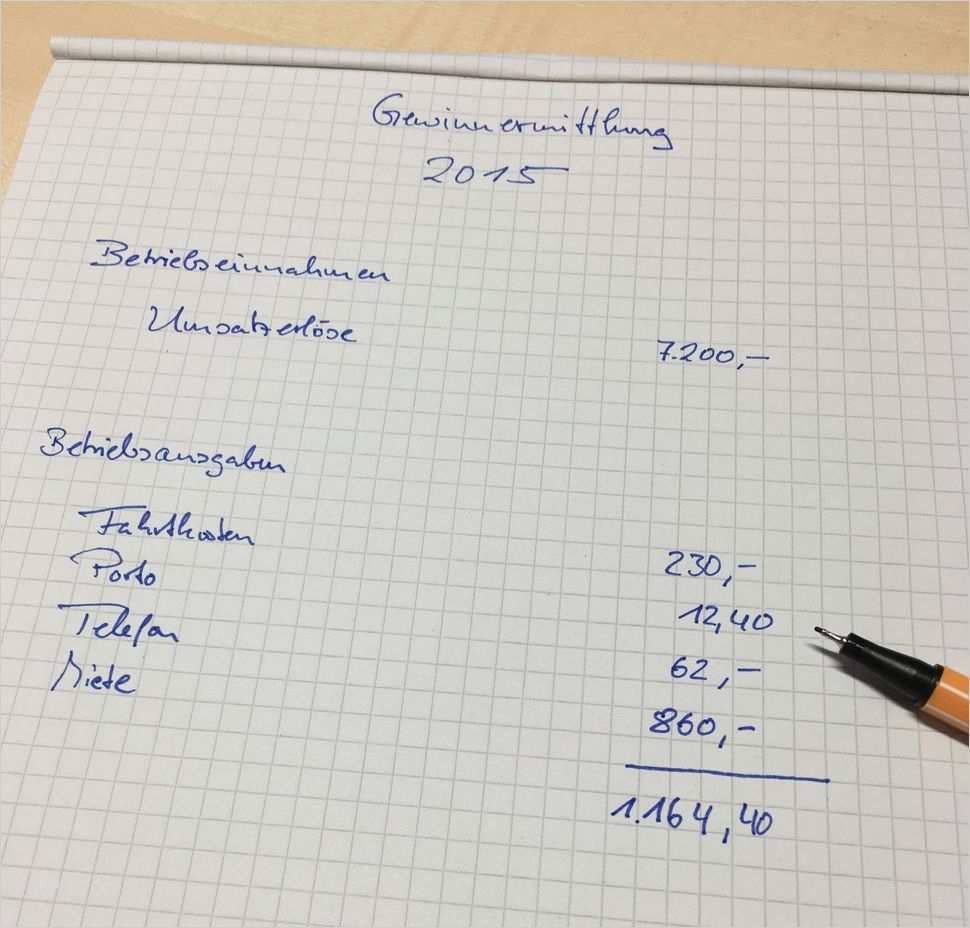 Gewinnermittlung
2015
Betriebseinnahmen
Umsatzerlöse 7.200,—
Betriebsausgaben
Fahrtkosten 230,—
Porto 12,40
Telefon 62,—
Miete 860,—
1.164,40